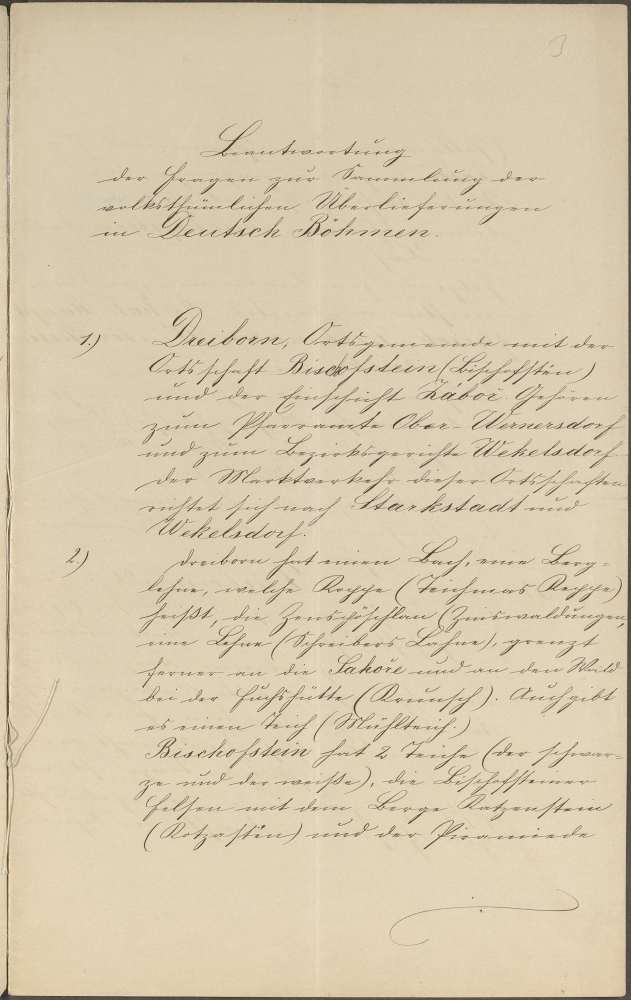 3
Beantwortung
der Fragen zur Sammlung der
volksthümlichen Überlieferungen
in Deutsch Böhmen.
1.) Dreiborn, Ortsgemeinde mit der
Ortsschaft Bischofstein (Bischofstën)
und der Einschicht Záboř. Gehören
zum Pfarramte Ober-Wernersdorf
und zum Bezirksgerichte Wekelsdorf
der Marktverkehr dieser Ortsschaften
richtet sich nach Starkstadt und
Wekelsdorf.
2.) Dreiborn hat einen Bach, eine Berg-
lehne, welche Koppe (Teichmas Keppe)
heißt, die (Zinswaldungen,
eine Lehne (Schreibers Lahne), grenzt
ferner an die Sahoře und an den Wald
bei der Fuchshütte (Krunsch). Auch gibt
es einen Teich (Mühlteich.)
Bischofstein hat 2 Teiche (der schwar-
ze und der weiße), die Bischofsteiner
Felsen mit dem Berge Katzenstein
(Kotzastën) und der Piramiede